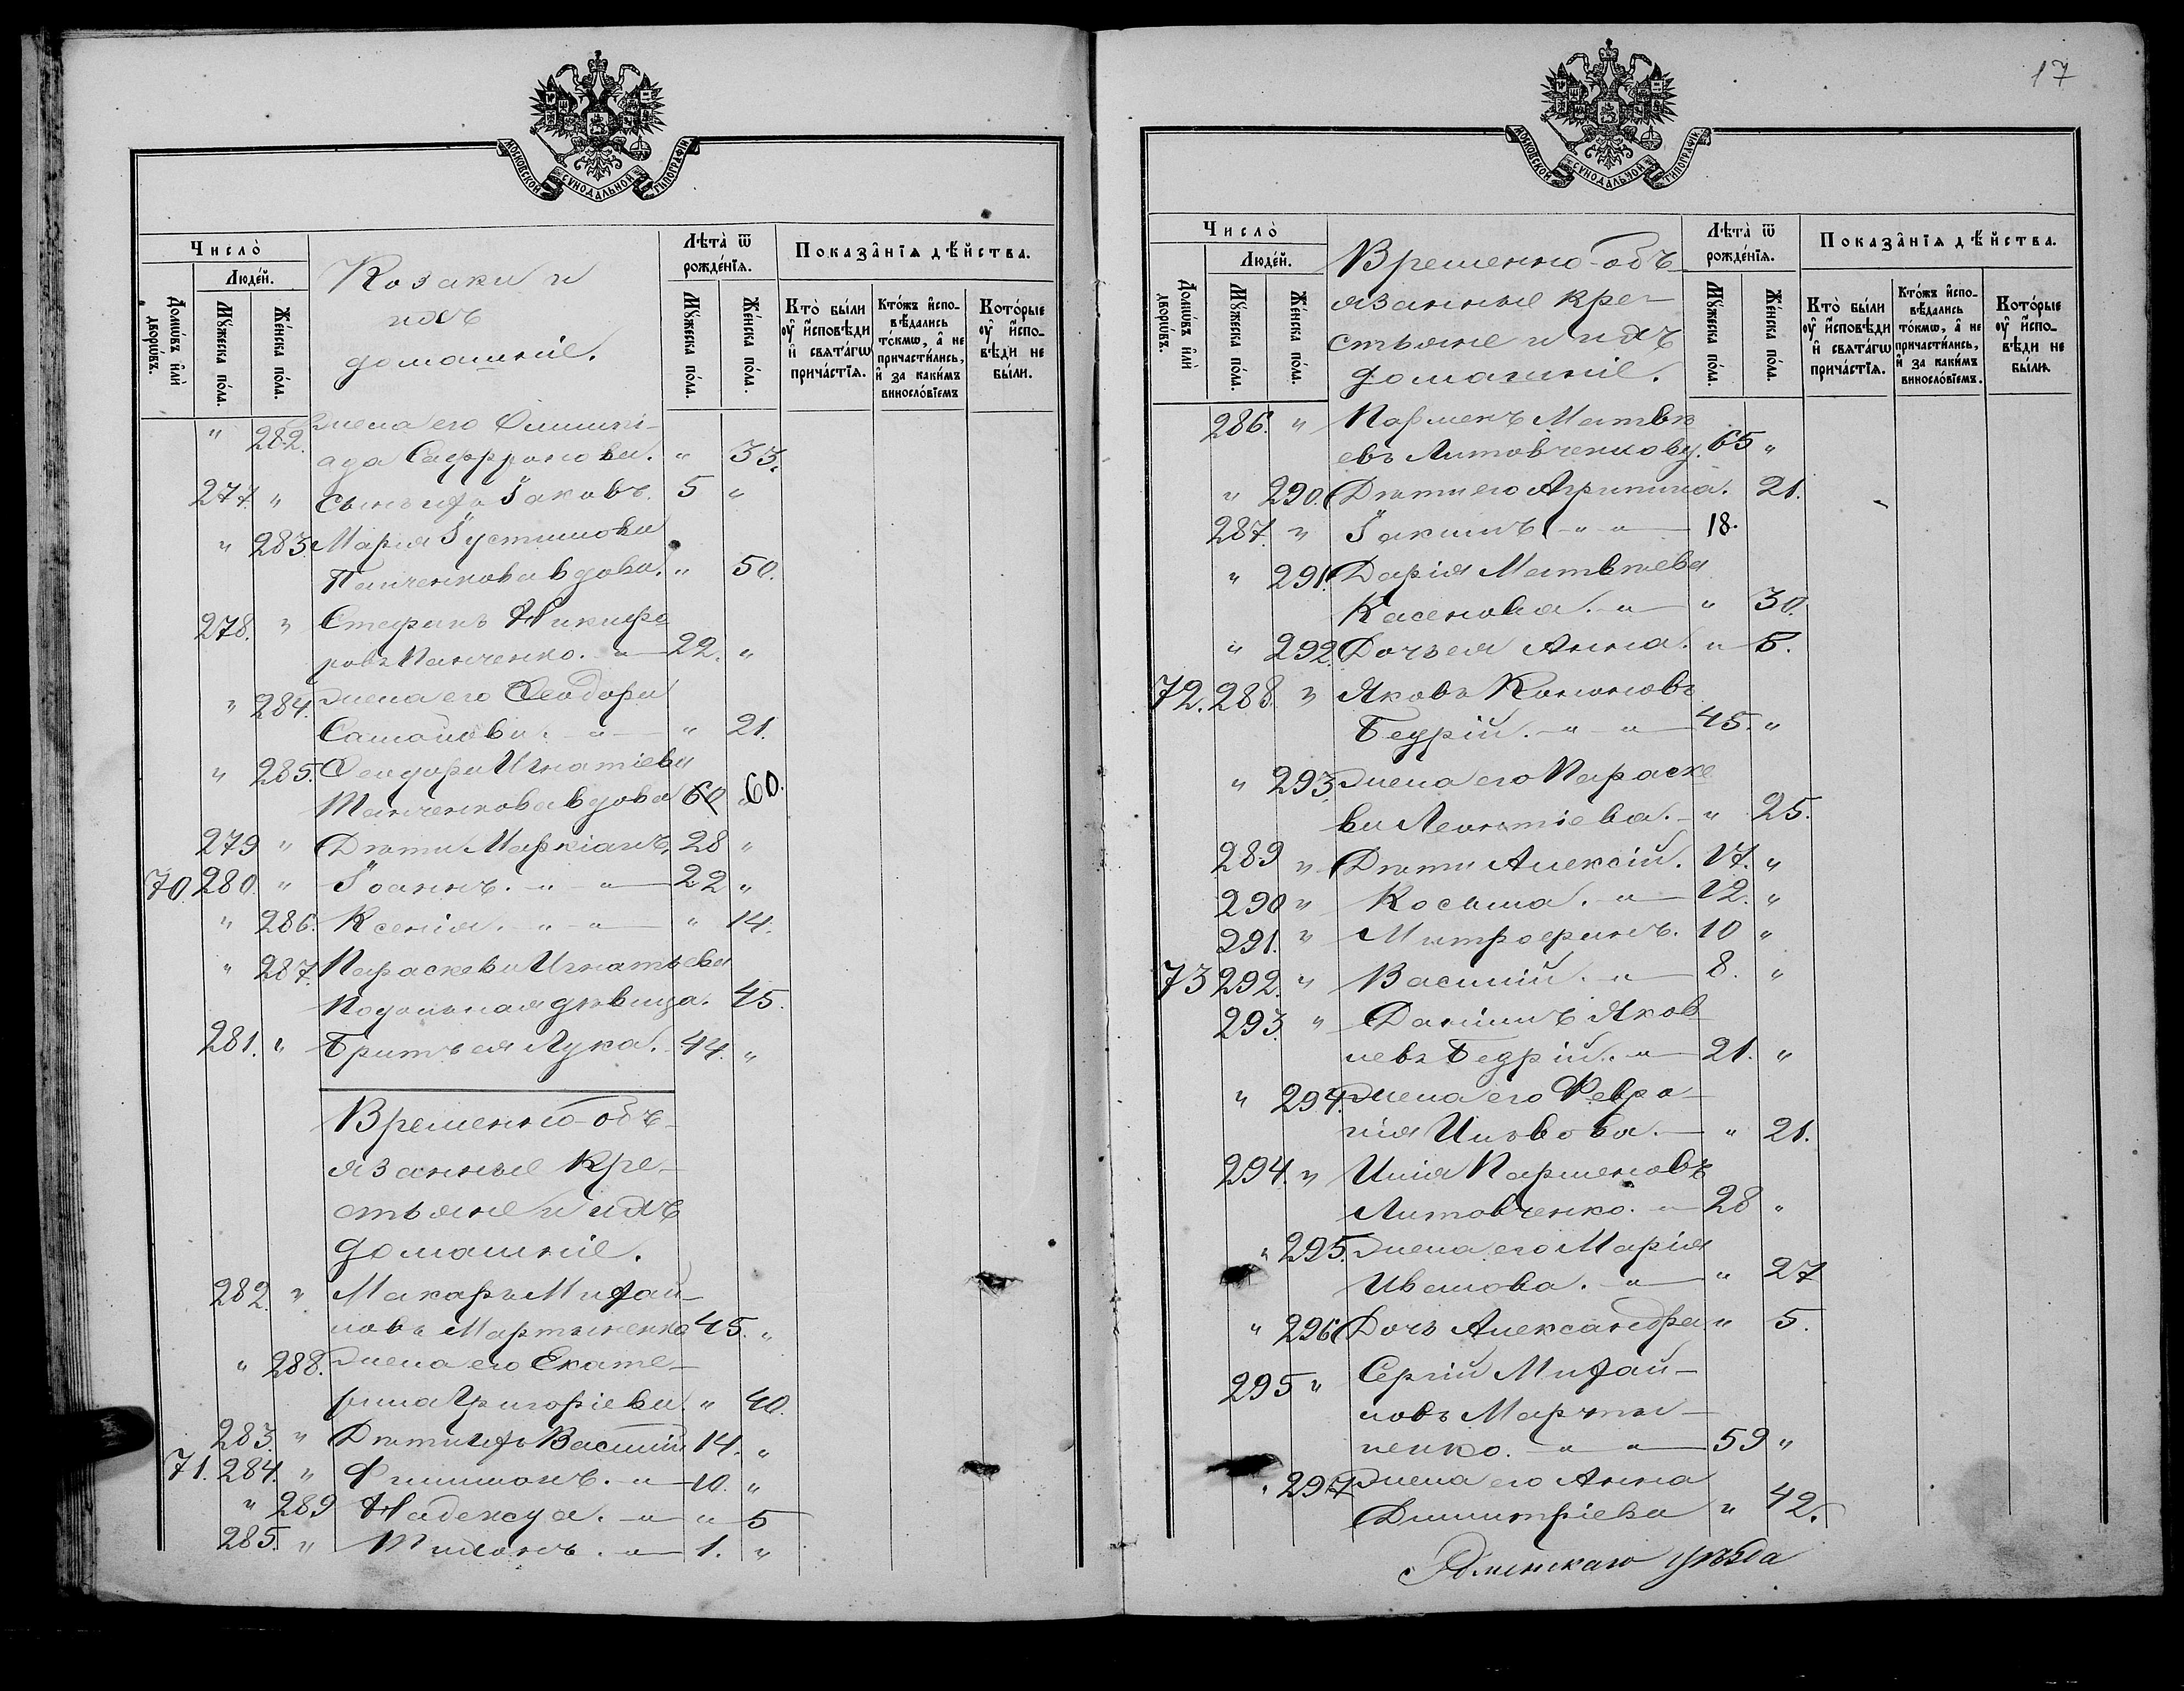 МОСКОВСКОЙ СѴНОДАЛЬНОЙ ТИПОГРАФІИ
Число̀
Люде́й.
Домѡ́въ и҆лѝ дворѡ́въ.
Мꙋ́жеска по́ла.
Же́нска по́ла.
Козаки и
ихъ
домашніе.
Лѣта̀ ѿ рожде́нїѧ.
Мꙋ́жеска по́ла.
Же́нска по́ла.
Показа̑нїѧ дѣ́йства.
Кто̀ бы́ли оу҆ и҆сповѣди и҆ свѧта́гѡ прича́стїѧ.
Кто́жъ и҆спо-вѣдались то́кмѡ, а҆ не причасти́лись, и҆ за каки́мъ винословїемъ
Кото́рые оу҆ и҆спо-вѣди не бы́ли.
" 282. Жена его Олимпі-
ада Саффронова. " 33.
277. " Сынъ ихъ Іаковъ. 5 "
" 283. Марія Іустинова
Панченкова вдова. " 50.
278. " Стефанъ Никифо
ровъ Панченко. " 22. "
" 284. Жена его Феодора
Самойлова. " " 21.
" 285. Феодора Игнатіева
Панченкова вдова 60 " 60.
279 " Дѣти Маркіанъ, 28 "
70. 280. " Іоаннъ. " " 22 "
" 286. Ксенія. " " " 14.
" 287. Параскева Игнатьева
Подольная дѣвица. 45.
281. " Братъ ея Лука. 44. "
Временно-объ-
язанные кре-
стьяне и ихъ
домашніе.
282. " Макаръ Михай-
ловъ Мартыненко 45. "
" 288. Жена его Екате-
рина Григоріева. " 40.
283. " Дѣти ихъ Василій 14. "
71. 284. " Филимонъ. " 10. "
" 289 Надежда. " " 5
285. " Тихонъ. " 1. "
17
МОСКОВСКОЙ СѴНОДАЛЬНОЙ ТИПОГРАФІИ
Число̀
Люде́й.
Домѡ́въ и҆лѝ дворѡ́въ.
Мꙋ́жеска по́ла.
Же́нска по́ла.
Временно-объ-
язанные кре-
стьяне и ихъ
домашніе.
Лѣта̀ ѿ рожде́нїѧ.
Мꙋ́жеска по́ла.
Же́нска по́ла.
Показа̑нїѧ дѣ́йства.
Кто̀ бы́ли оу҆ и҆сповѣди и҆ свѧта́гѡ прича́стїѧ.
Кто́жъ и҆спо-вѣдались то́кмѡ, а҆ не причасти́лись, и҆ за каки́мъ винословїемъ.
Кото́рые оу҆ и҆спо-вѣди не бы́ли.
286. " Парменъ Матвѣ
евъ Литовченков. 65 "
" 290. Дѣти его Агрипина. 21.
287. " Іакимъ " " 18.
" 291. Дарія Матвѣева
Касенова. " " 30.
" 292. Дочь ея Анна. " 5.
72. 288. " Яковъ Кононовъ
Бедрій. " " 45. "
" 293. Жена его Параске
ва Леонтіева. " 25.
289 " Дѣти Алексій. 17. "
290 " Косьма. " 12. "
291. " Митрофанъ. 10 "
73 292. " Василій. " 8. "
293. " Даніилъ Яков
левъ Бедрій. " 21. "
" 294. Жена его Февро-
нія Ильвова. " 21.
294. " Илія Парменовъ
Литовченко. " 28 "
" 295. Жена его Марія
Иванова. " " 27
" 296 Дочь Александра " 5.
295 " Сергій Михай-
ловъ Марты-
ненко. " " 59 "
" 297 Жена его Анна
Димитріева " 42.
Роменскаго уѣзда